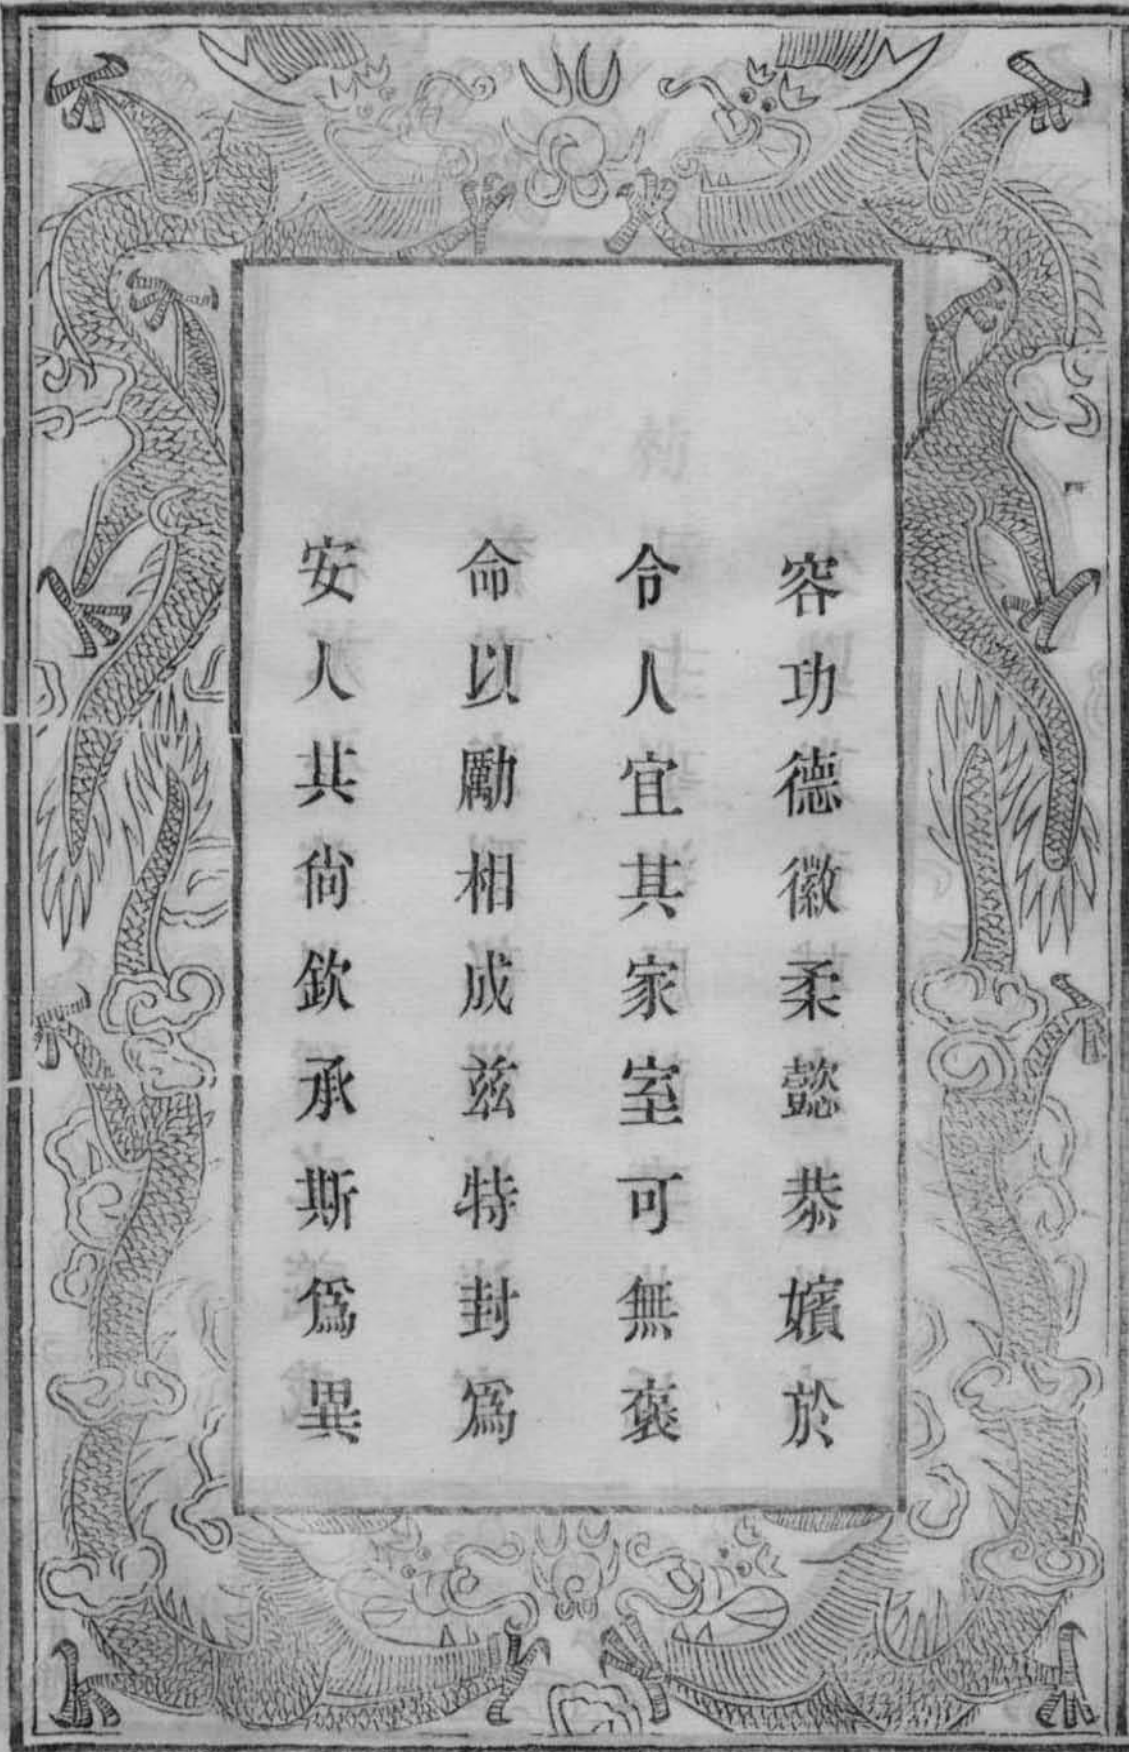 容功德徽柔懿恭嬪於
令人宜其家室可無褒
命以勵相成茲特封爲
安人其尚欽承斯爲異